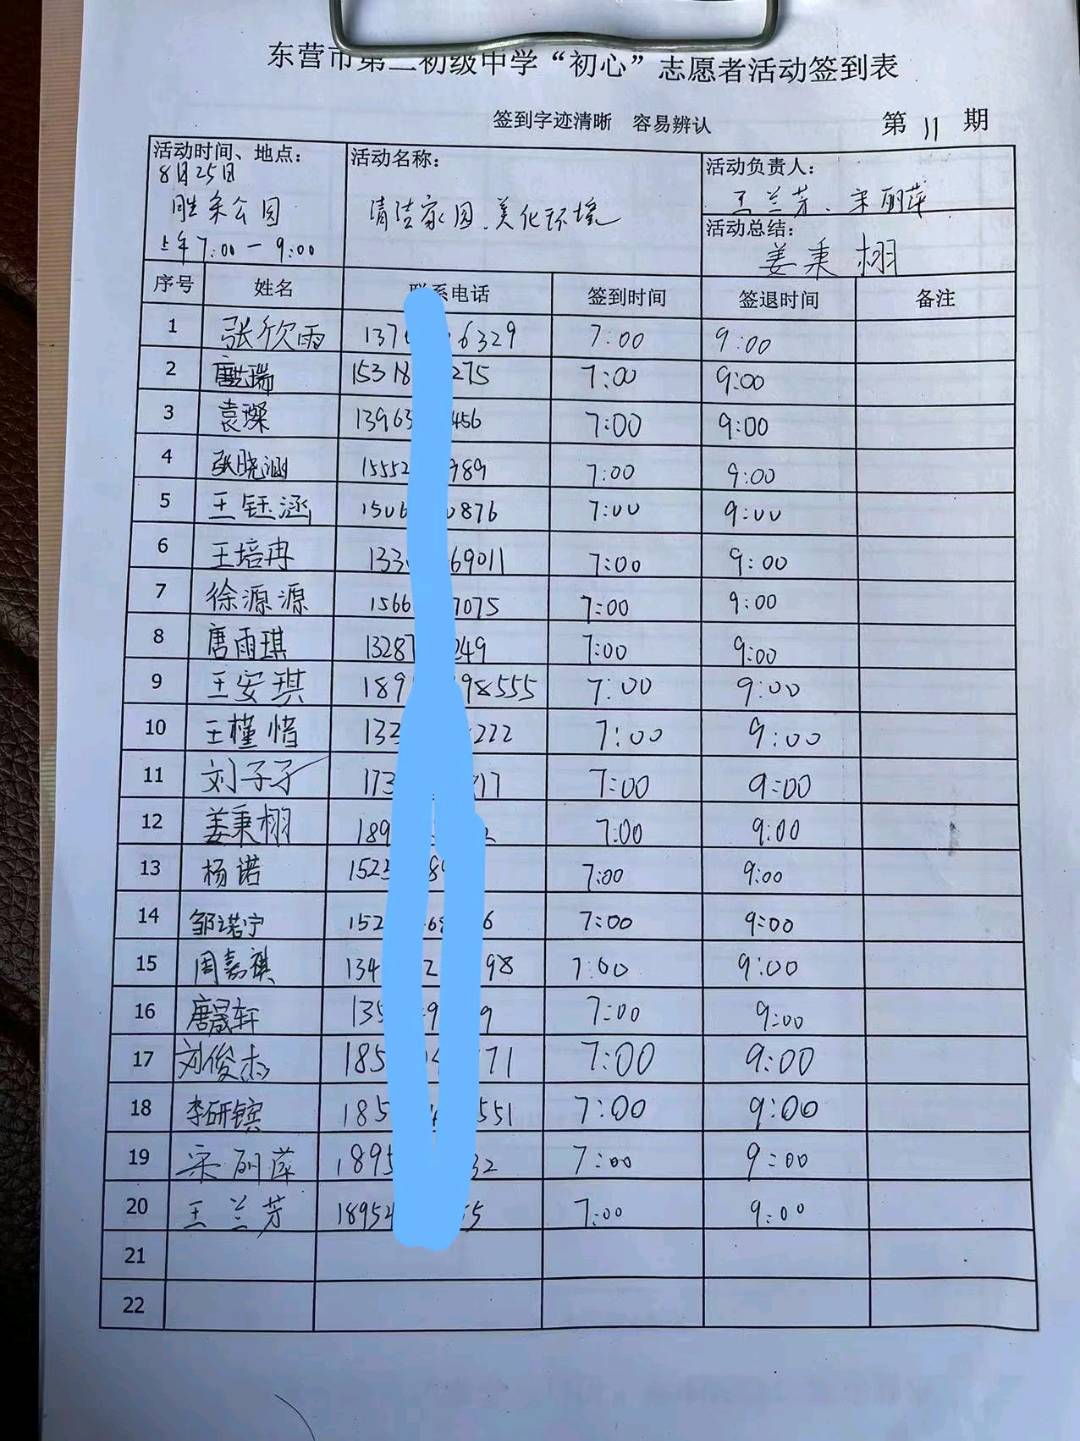 东营市第二初级中学“初心”志愿者活动签到表
签到字迹清晰 容易辨认 第 11 期
活动时间、地点:
8月25日
胜利公园
上午7:00一9:00
活动名称:
清洁家园、美化环境
活动负责人:
王兰芳、宋丽萍
活动总结:
姜秉栩
序号 姓名 联系电话 签到时间 签退时间 备注
1 张欣雨 137 6329 7:00 9:00
2 瑞 15318 275 7:00 9:00
3 袁璨 13963 456 7:00 9:00
4 张晓涵 15552 989 7:00 9:00
5 王钰涵 1506 0876 7:00 9:00
6 王培冉 133 69011 7:00 9:00
7 徐源源 1566 7075 7:00 9:00
8 唐雨琪 13287 249 7:00 9:00
9 王安琪 189 98555 7:00 9:00
10 王槿惜 132 222 7:00 9:00
11 刘子 173 17 7:00 9:00
12 姜秉栩 189 2 7:00 9:00
13 杨诺 1523 8 7:00 9:00
14 邹诺宁 152 6 6 7:00 9:00
15 周嘉祺 134 2 98 7:00 9:00
16 唐晟轩 135 9 9 7:00 9:00
17 刘俊杰 185 4 71 7:00 9:00
18 李研镔 185 4 551 7:00 9:00
19 宋丽萍 1895 32 7:00 9:00
20 王兰芳 18954 55 7:00 9:00
21
22